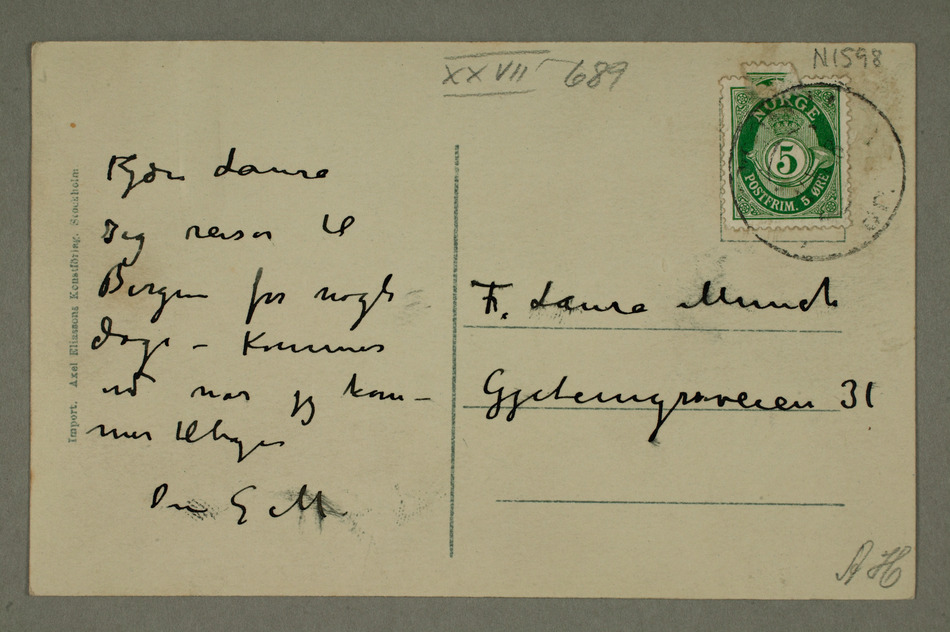 XXVII 689
N1598
NORGE
5
POSTFRIM. 5 ØRE
Kjære Laura
Jeg reiser til
Bergen for nogle
dage – Kommer
ud når jeg kom–
mer tilbage
Din E M
Fr. Laura Munch
31
Import. Axel Eliassons Konstförlag. Stockholm
AH